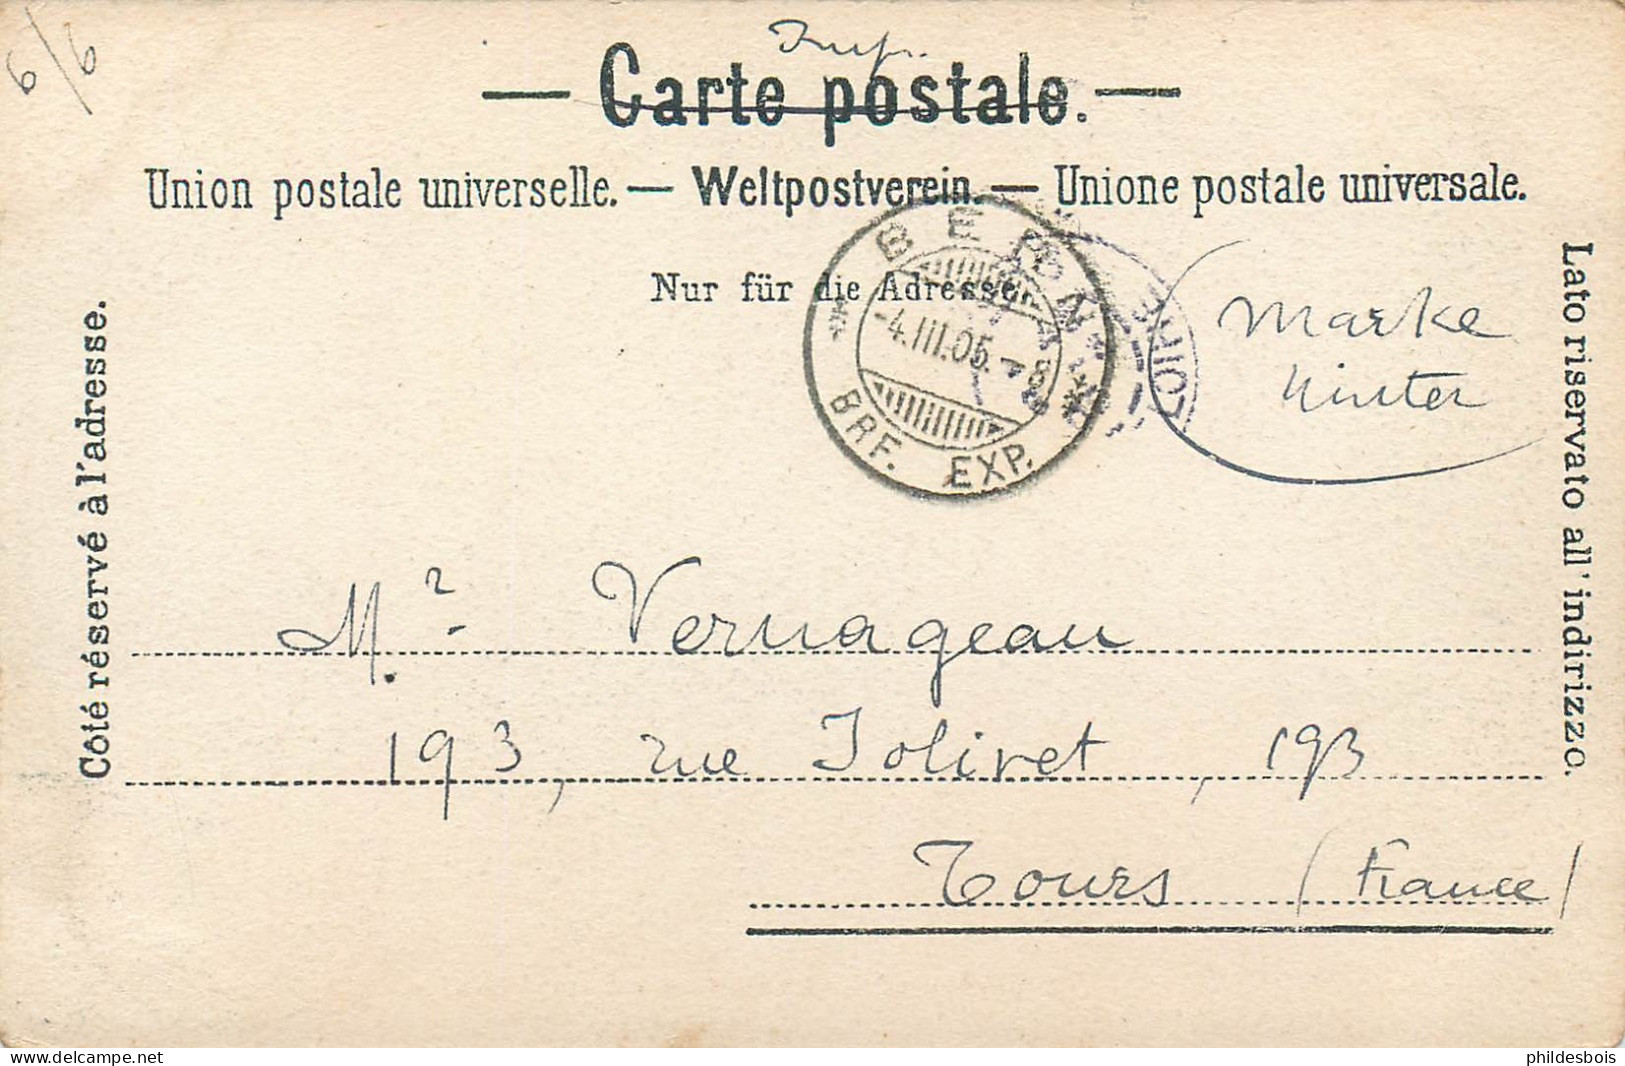 6/6
Carte postale.
Union postale universelle. — Weltpostverein. — Unione postale universale.
Nur für die Adresse.
Côté réservé à l'adresse.
Lato riservato all' indirizzo.
BERN
-4.III.05.-8
BRF. EXP.
LOIRE
Marke
hinten
Mr. Vernageau
193, rue Jolivet, 193
Tours (France)
delcampe.net
phildesbois